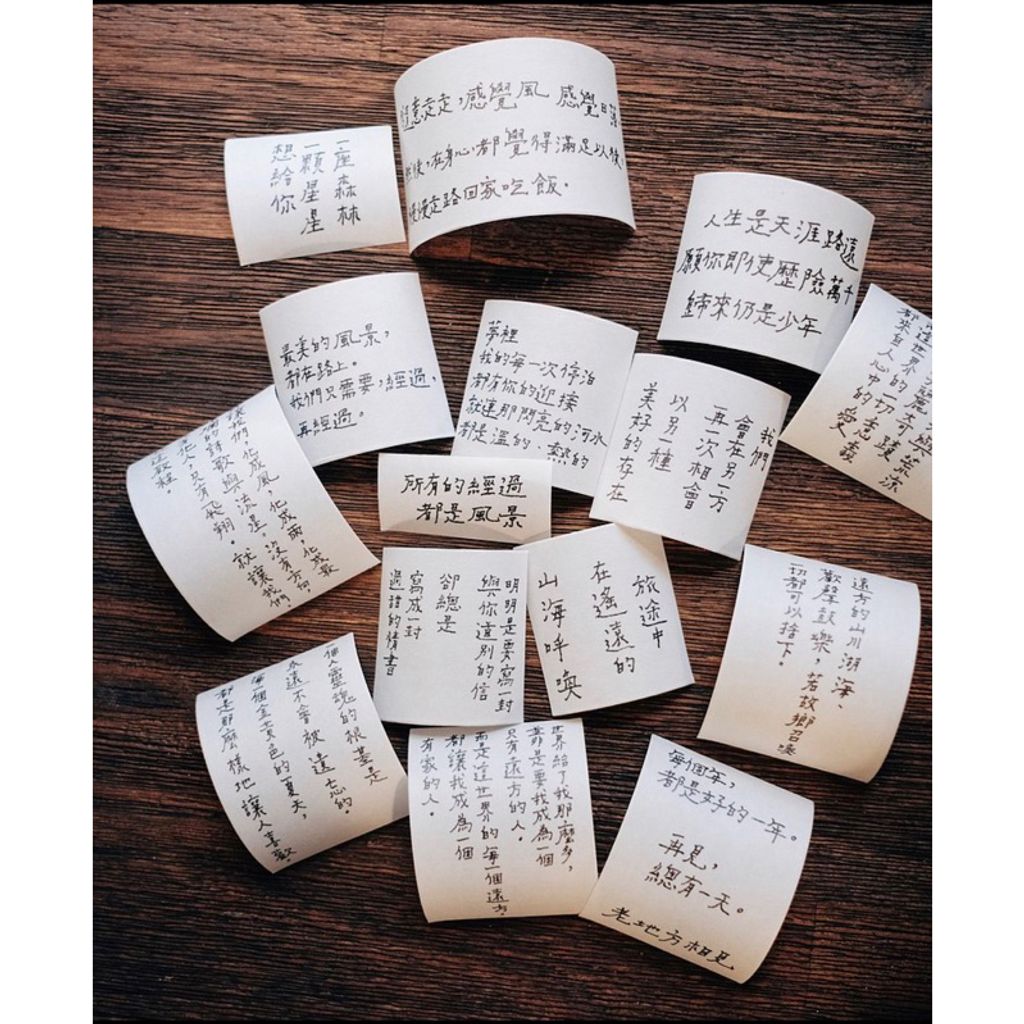 一座森林
一顆星星
想給你
隨意走走，感覺風 感覺日落。
然後，在身心都覺得滿足以後，
慢慢走路回家吃飯。
人生是天涯路遠
願你即使歷險萬千
歸來仍是少年
最美的風景，
都在路上。
我們只需要，經過，
再經過。
夢裡
我的每一次停泊
都有你的迎接
就連那閃亮的河水
都是溫的、熱的
我們
會在另一方
再一次相會
以另一種
美好的存在
這世界
的奇蹟與荒涼
都來自人心中的一切悲
愛
讓我們化成風，化成雨，化成
的詩歌與流星。沒有方向，
他人，只有飛翔。就讓我們，
這般
所有的經過
都是風景
明明是要寫一封
與你道別的信
卻總是
寫成一封
過
的情書
旅途中
在遙遠的
山海呼喚
遠方的山川湖海、
歡聲鼓樂，若故鄉召喚
一切都可以捨下。
一個人靈魂的根基是
永遠不會被遺忘的。
每一個金黃色的夏天，
都是那麼樣地讓人喜歡。
世界給了我那麼多，
並非是要我成為一個
只有遠方的人。
而是這世界的每一個遠方，
都讓我成為一個
有家的人。
每個年，
都是好的一年。
再見，
總有一天。
老地方相見